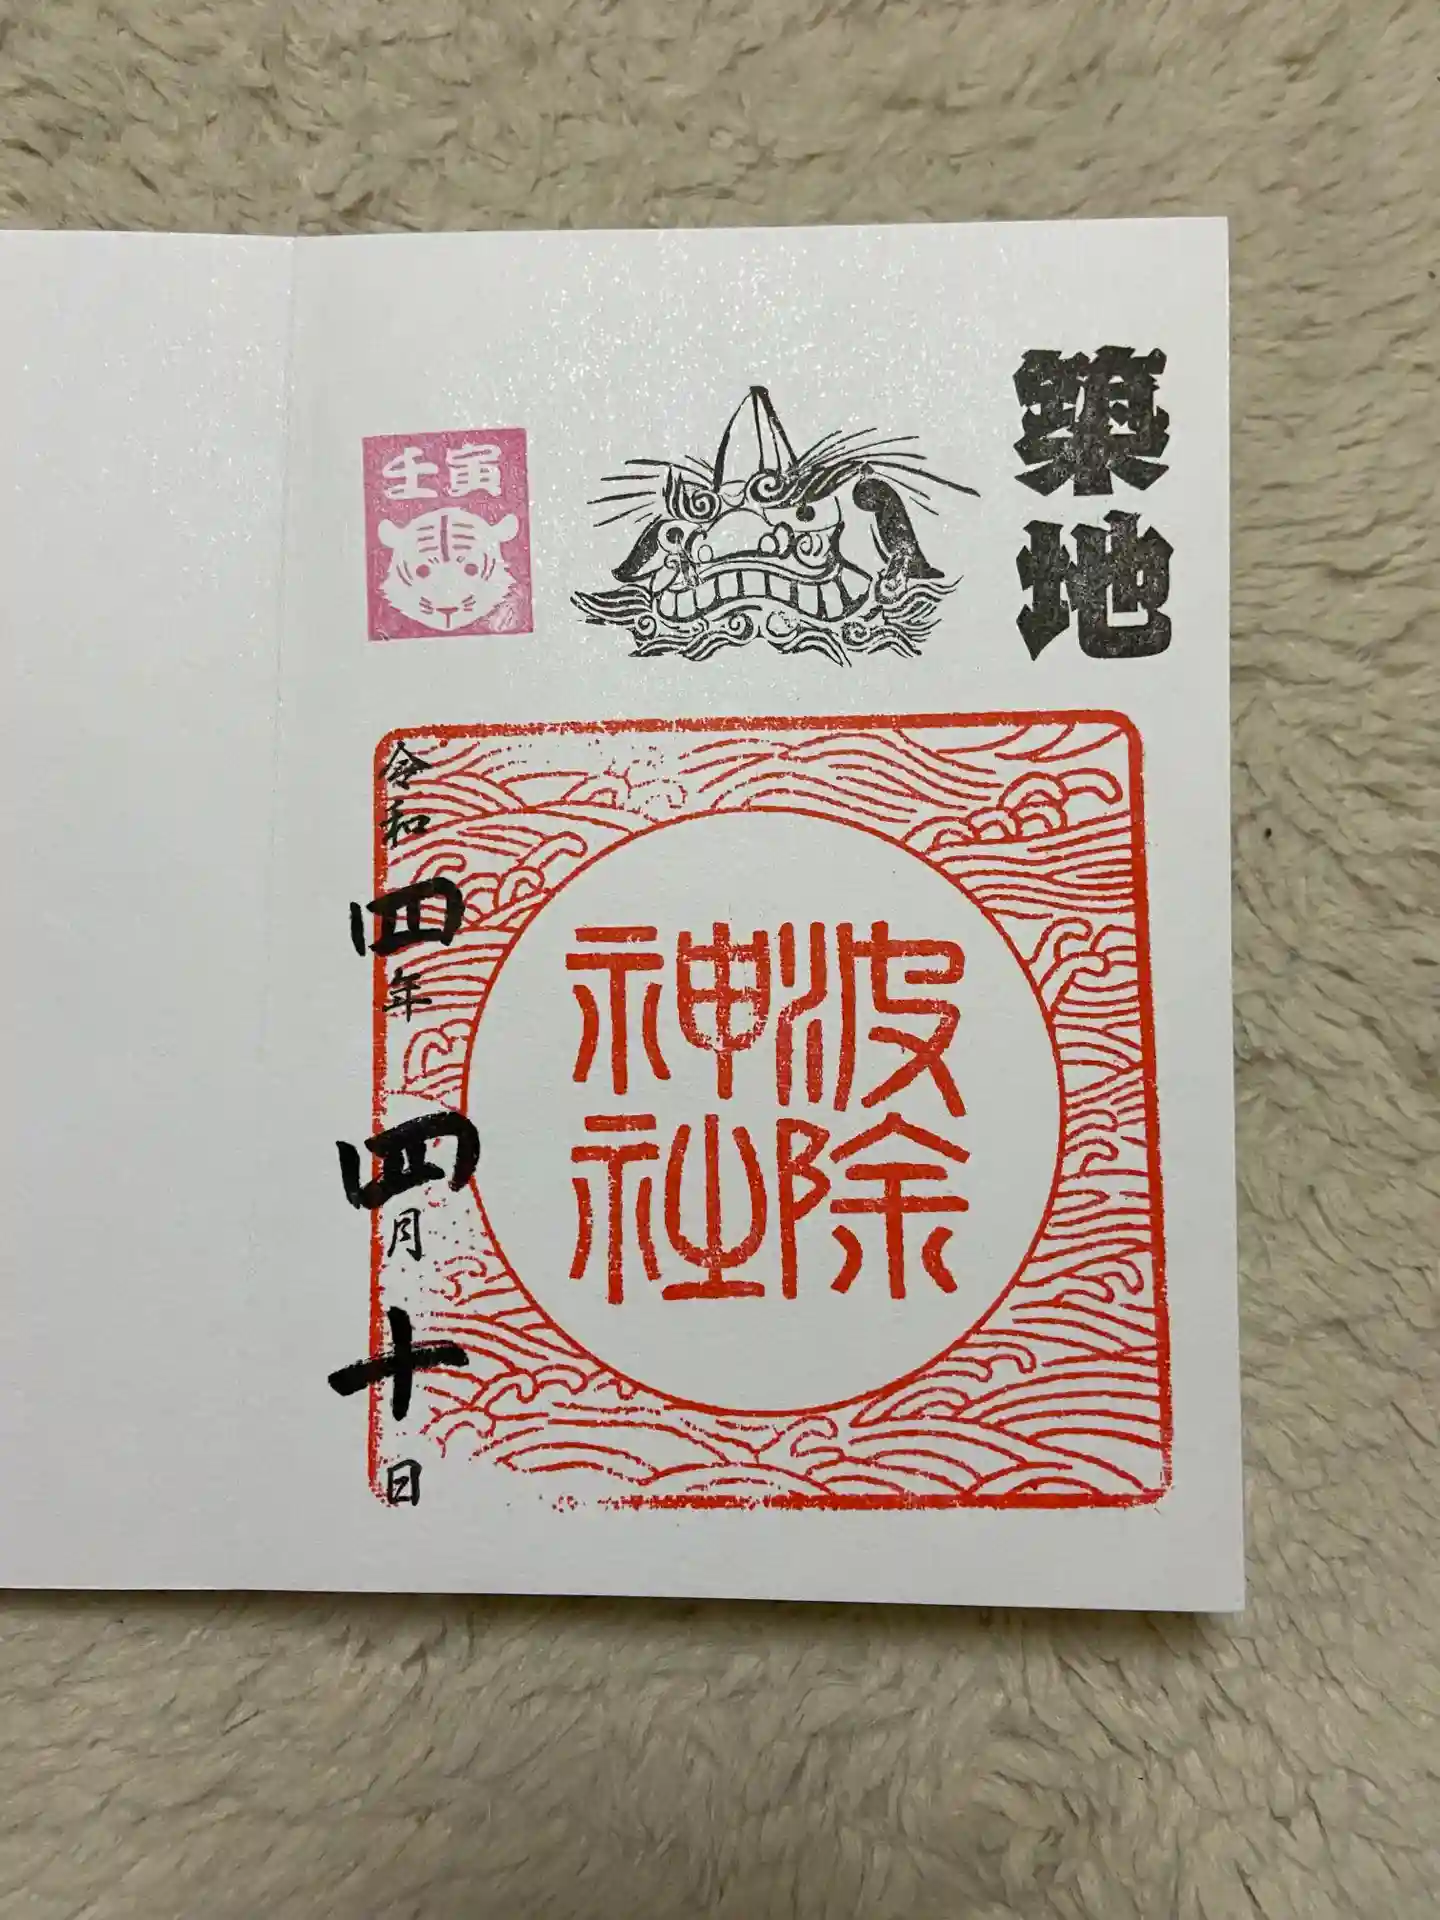 築地
壬寅
波除
神社
令和四年四月十日